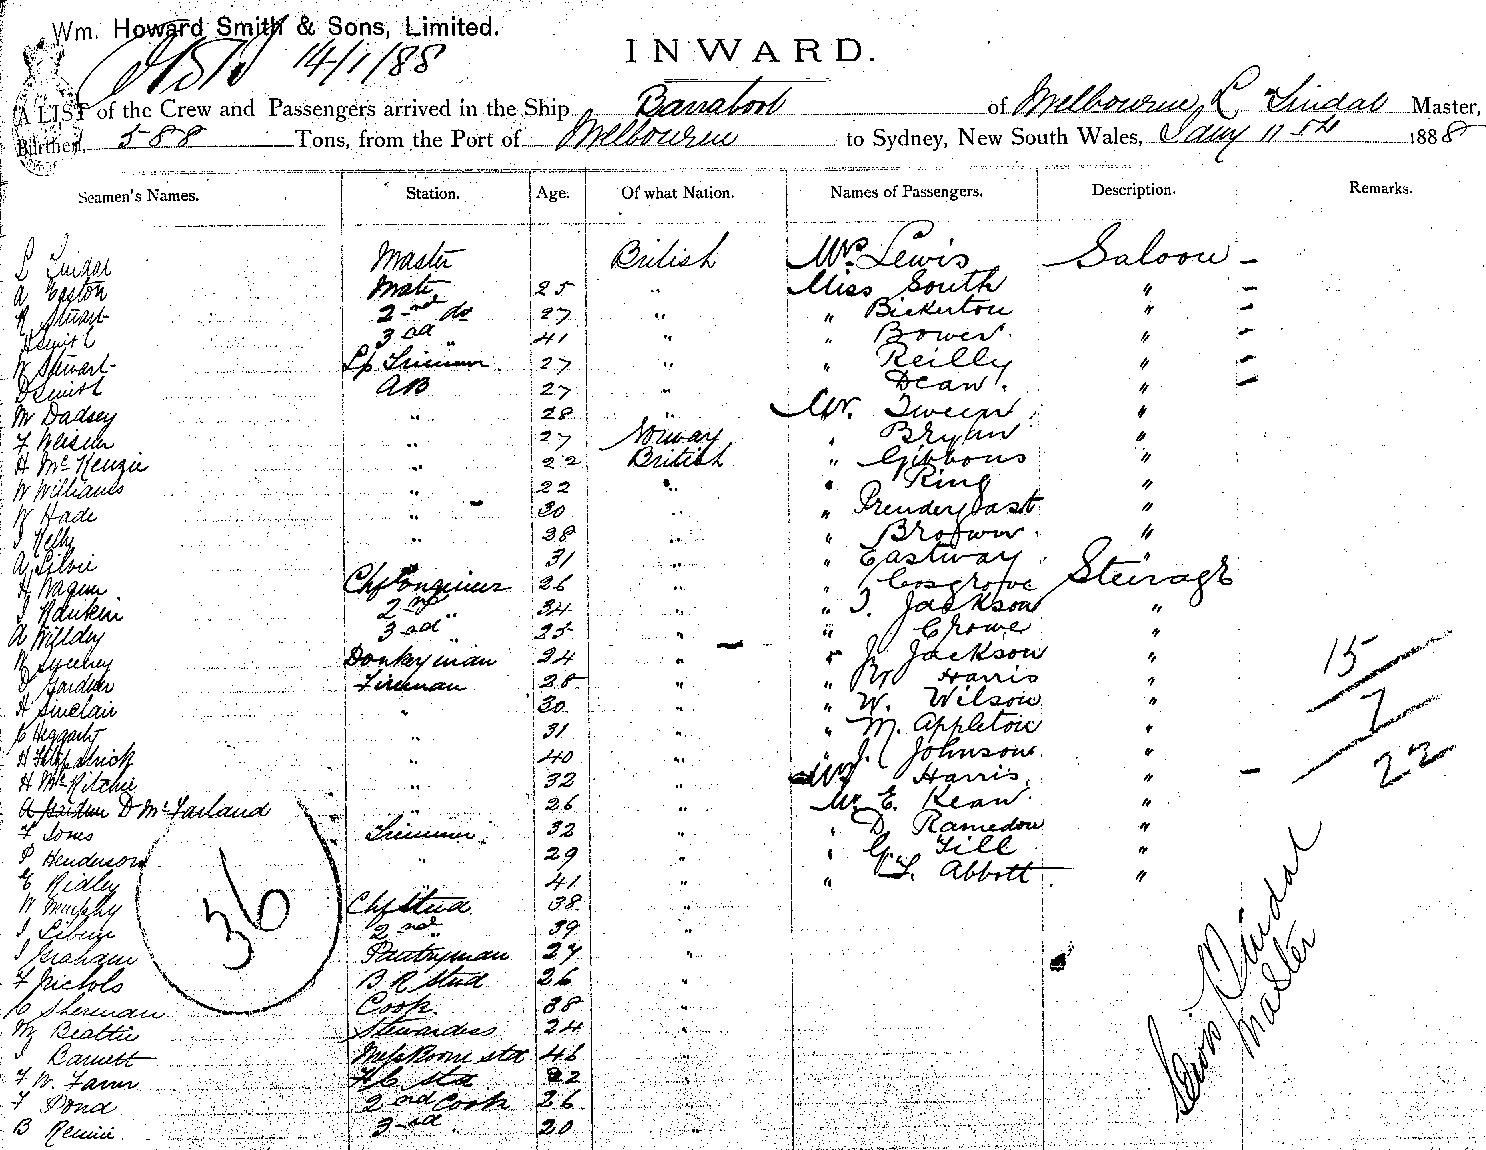 Wm. Howard Smith & Sons, Limited.
14/1/88
INWARD.
A LIST of the Crew and Passengers arrived in the Ship Barrabool of Melbourne, L Lindal Master,
Burthen, 588 Tons, from the Port of Melbourne to Sydney, New South Wales, Jany 1888
Seamen's Names. Station. Age. Of what Nation. Names of Passengers. Description. Remarks.
L Lindal Master British Mrs. Lewis Saloon -
A Easton Mate 25 " Miss South " -
R Stuart 2nd do 27 " " Bickerton " -
H Smith 3rd " 41 " " Bower " -
W Stewart Lp Trimmer 27 " " Reilly " -
D Smith AB 27 " " Dean " -
M Dadsey " 28 " Mr. "
F " 27 Norway " Bryan "
H McKenzie " 22 British " Gibbons "
W Williams " 22 " " King "
W Hade " 30 " " Prendergast "
J Kelly " 38 " " Brown "
A Silvie " 31 " " Eastway "
H Wagen Chf Engineer 26 " " Cosgrove Steerage
J Rankin 2nd " 34 " " T. Jackson "
A Willdey 3rd " 25 " " Crowe "
Sweeney Donkeyman 24 " " J. Jackson "
D Gardner Fireman 28 " " Wm Harris "
H Sinclair " 30 " " W. Wilson "
C Heggarty " 31 " " M. Appleton "
H Fitzpatrick " 40 " " J. Johnson "
H McRitchie " 32 " Mrs Harris " -
D McFarland " 26 " Mr E. Kean "
F Jones Trimmer 32 " " D Ramedon "
P Henderson " 29 " " G. Gill "
E Ridley " 41 " " L. Abbott "
W Murphy Chf Stud 38 "
J 2nd " 39 "
J Graham Pantryman 27 "
F Nichols B R Stud 26 "
C Sherman Cook 38 "
Beattie Stewardess 24 "
J Barnett Messroom std 46 "
F W. Farrer F C Std 22 "
F Pond 2nd Cook 26 "
B Rennie 3rd " 20 "
36
15
7
22
Lewis Lindal
Master